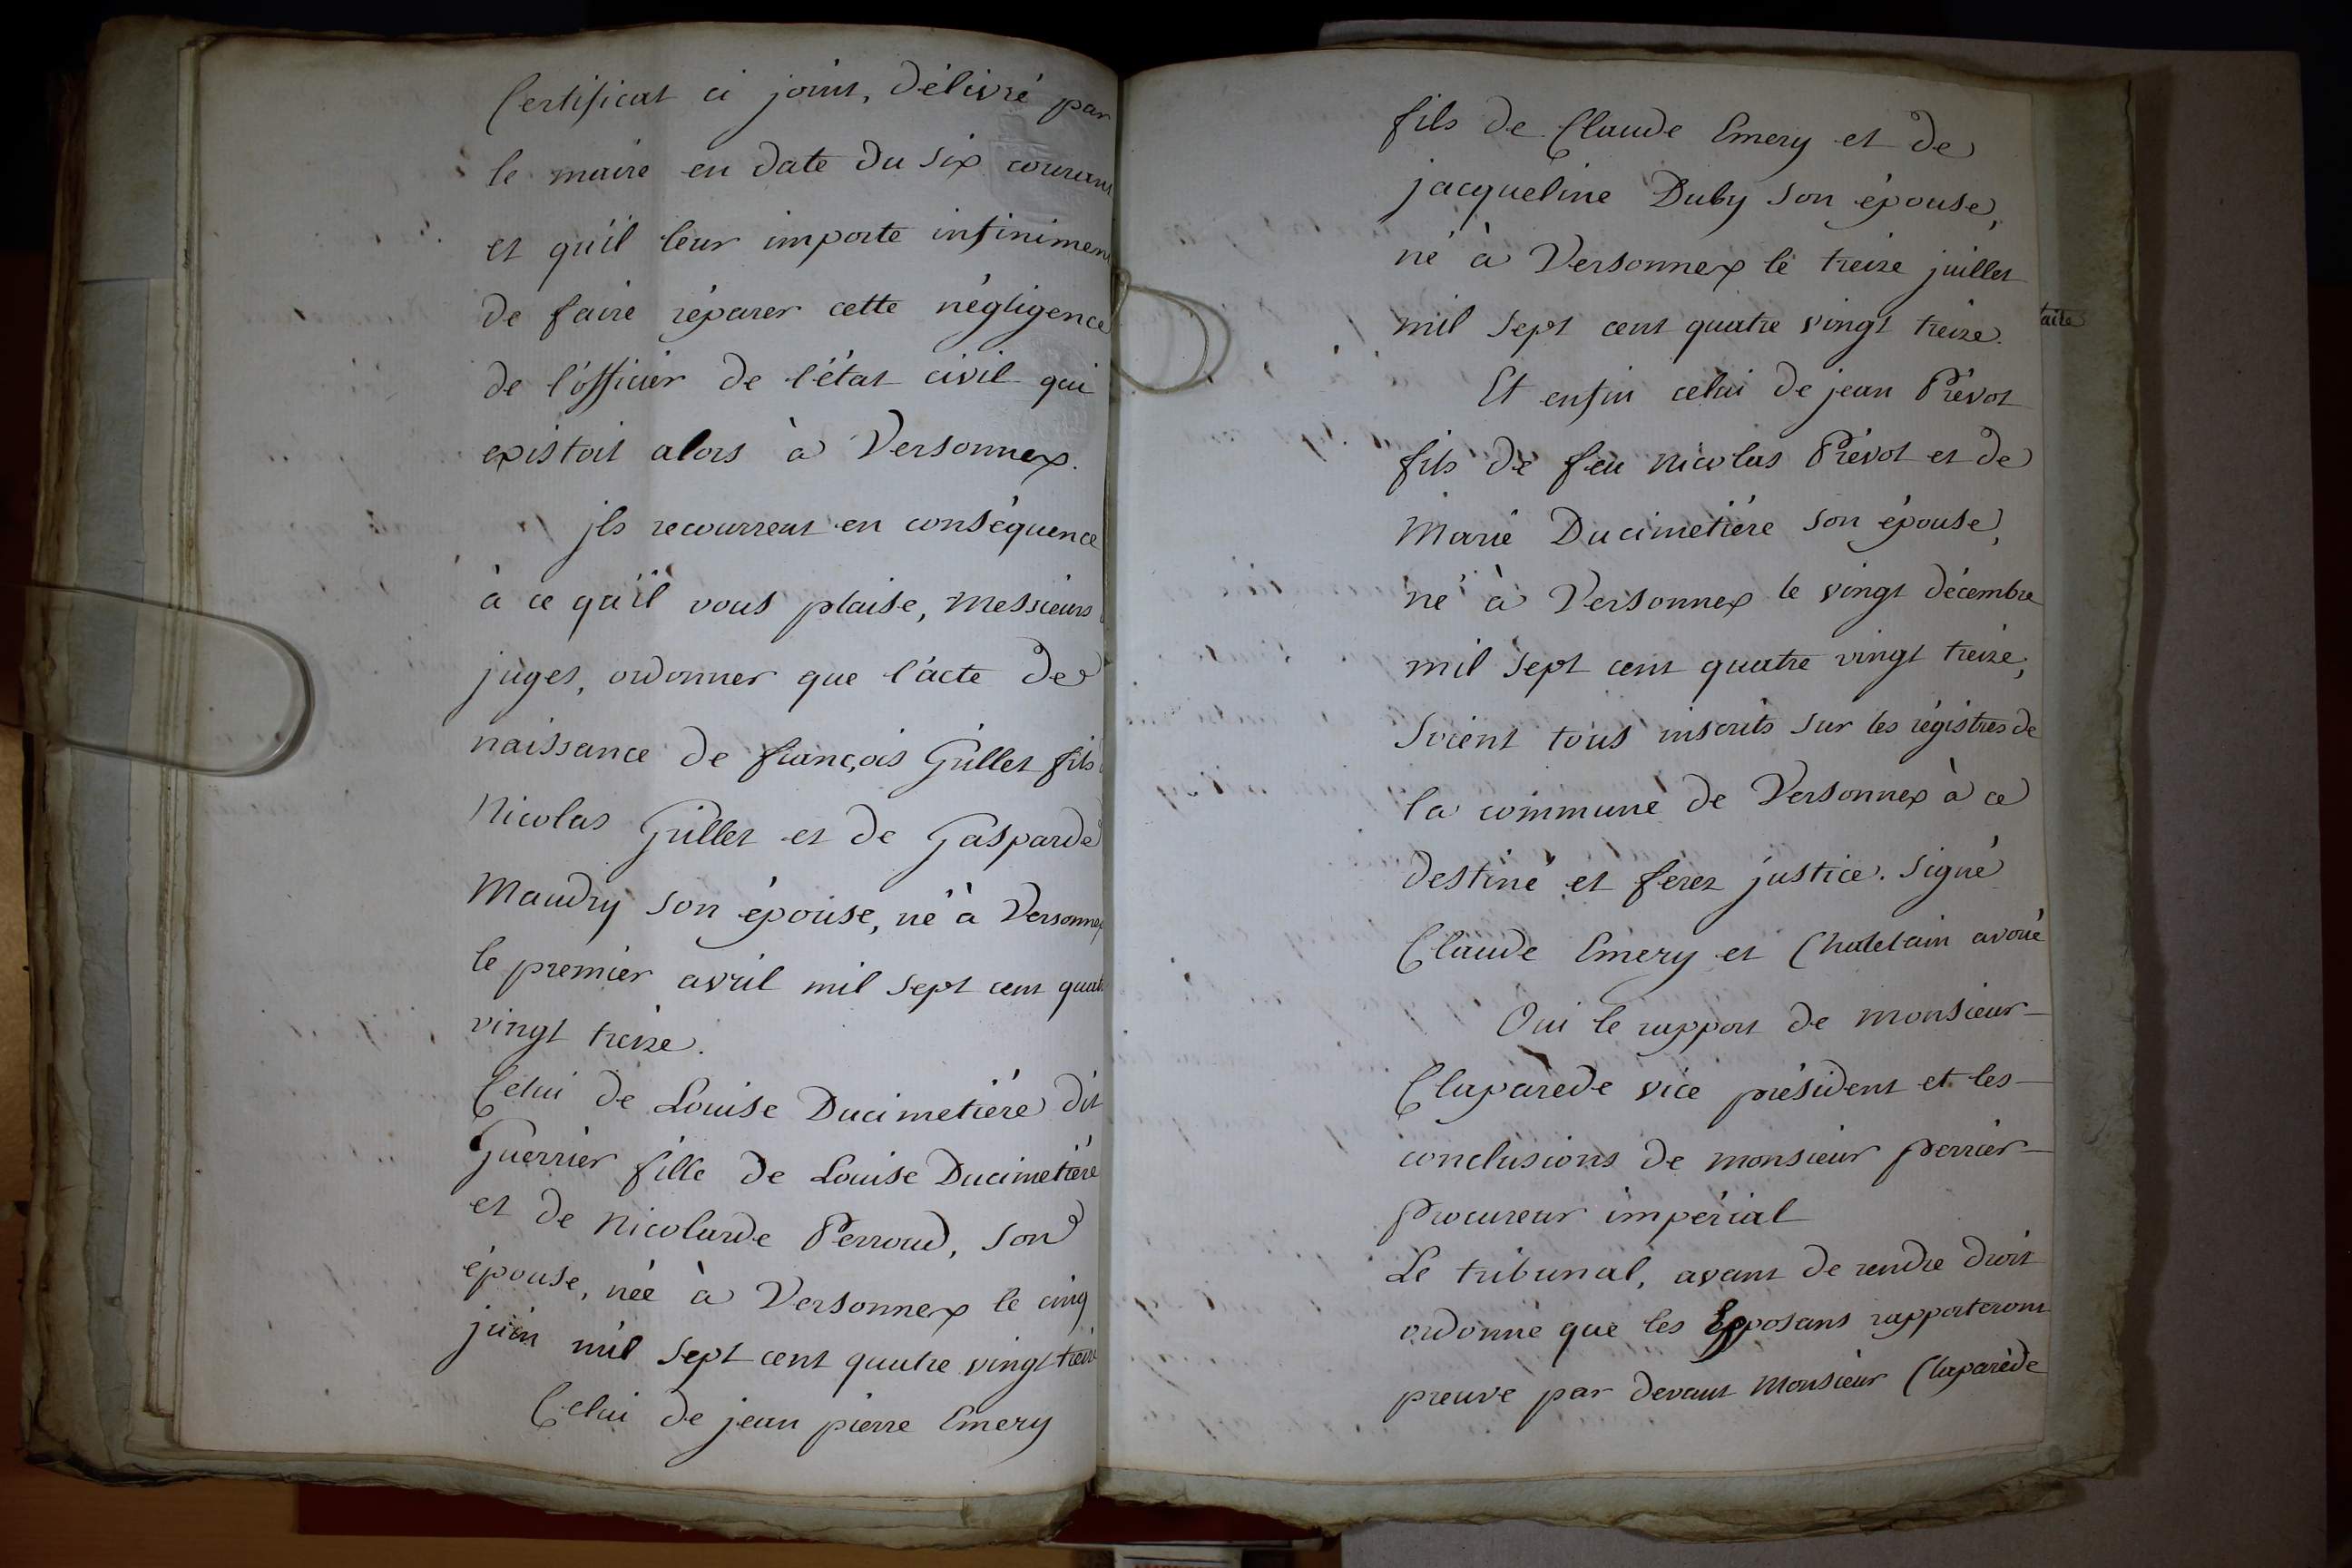 Certificat ci joint, délivré par
le maire en date du six courant
et qu'il leur importe infiniment
de faire réparer cette négligence
de l'officier de l'état civil qui
existoit alors à Versonnex.
jls recourrent en conséquence
à ce qu'il vous plaise, Messieurs
juges, ordonner que l'acte de
naissance de françois Grillet fils
Nicolas Grillet et de Gasparde
Maudry son épouse, né à Versonnex
le premier avril mil sept cent quatre
vingt treize.
Celui de Louise Ducimetiére dit
Guerrier fille de Louise Ducimetiére
et de Nicolarde Perroud, son
épouse, née à Versonnex le cinq
juin mil sept cent quatre vingt treize
Celui de jean pierre Emery
fils de Claude Emery et de
jacqueline Duby son épouse,
né à Versonnex le treize juillet
mil sept cent quatre vingt treize.
Et enfin celui de jean Prévot
fils de feu Nicolas Prévot et de
Marie Ducimetiére son épouse,
né à Versonnex le vingt décembre
mil sept cent quatre vingt treize,
Soient tous inscrits sur les régistres de
la commune de Versonnex à ce
destiné et ferez justice. Signé
Claude Emery et Chatelain avoué
Oui le rapport de monsieur
Claparède vice président et les
conclusions de monsieur perrier
Procureur impérial
Le tribunal, avant de rendre droit
ordonne que les Exposans rapporteront
preuve par devant Monsieur Claparède